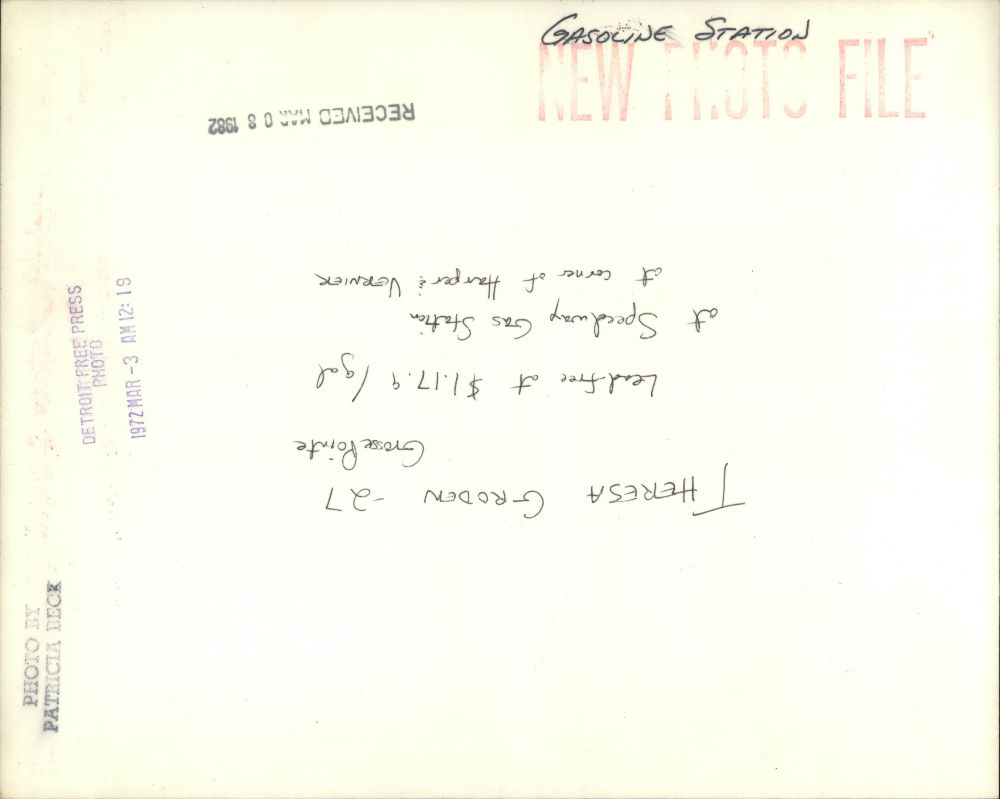 GASOLINE STATION
NEW PHOTO FILE
RECEIVED MAR 08 1982
THERESA GRODEN - 27
Grosse Pointe
Lead-free at $1.17.9 / gal
at Speedway Gas Station
at corner of Harper & VERNIER
DETROIT FREE PRESS
PHOTO
1972 MAR -3 AM 12:19
PHOTO BY
PATRICIA BECK